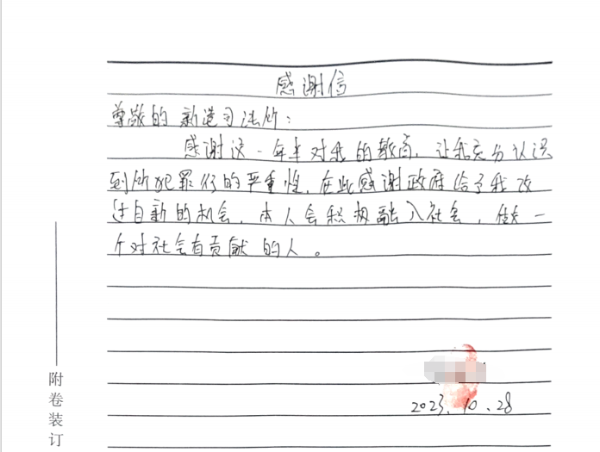 感谢信
尊敬的新造司法所：
感谢这一年半对我的教育，让我充分认识
到所犯罪行的严重性，在此感谢政府给了我改
过自新的机会，本人会积极融入社会，做一
个对社会有贡献的人。
2023.10.28
附卷装订